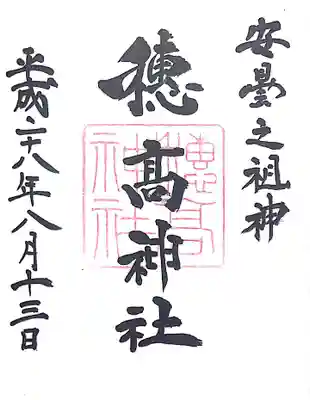 安曇之祖神
穂髙神社
穂高神社
平成二十八年八月十三日